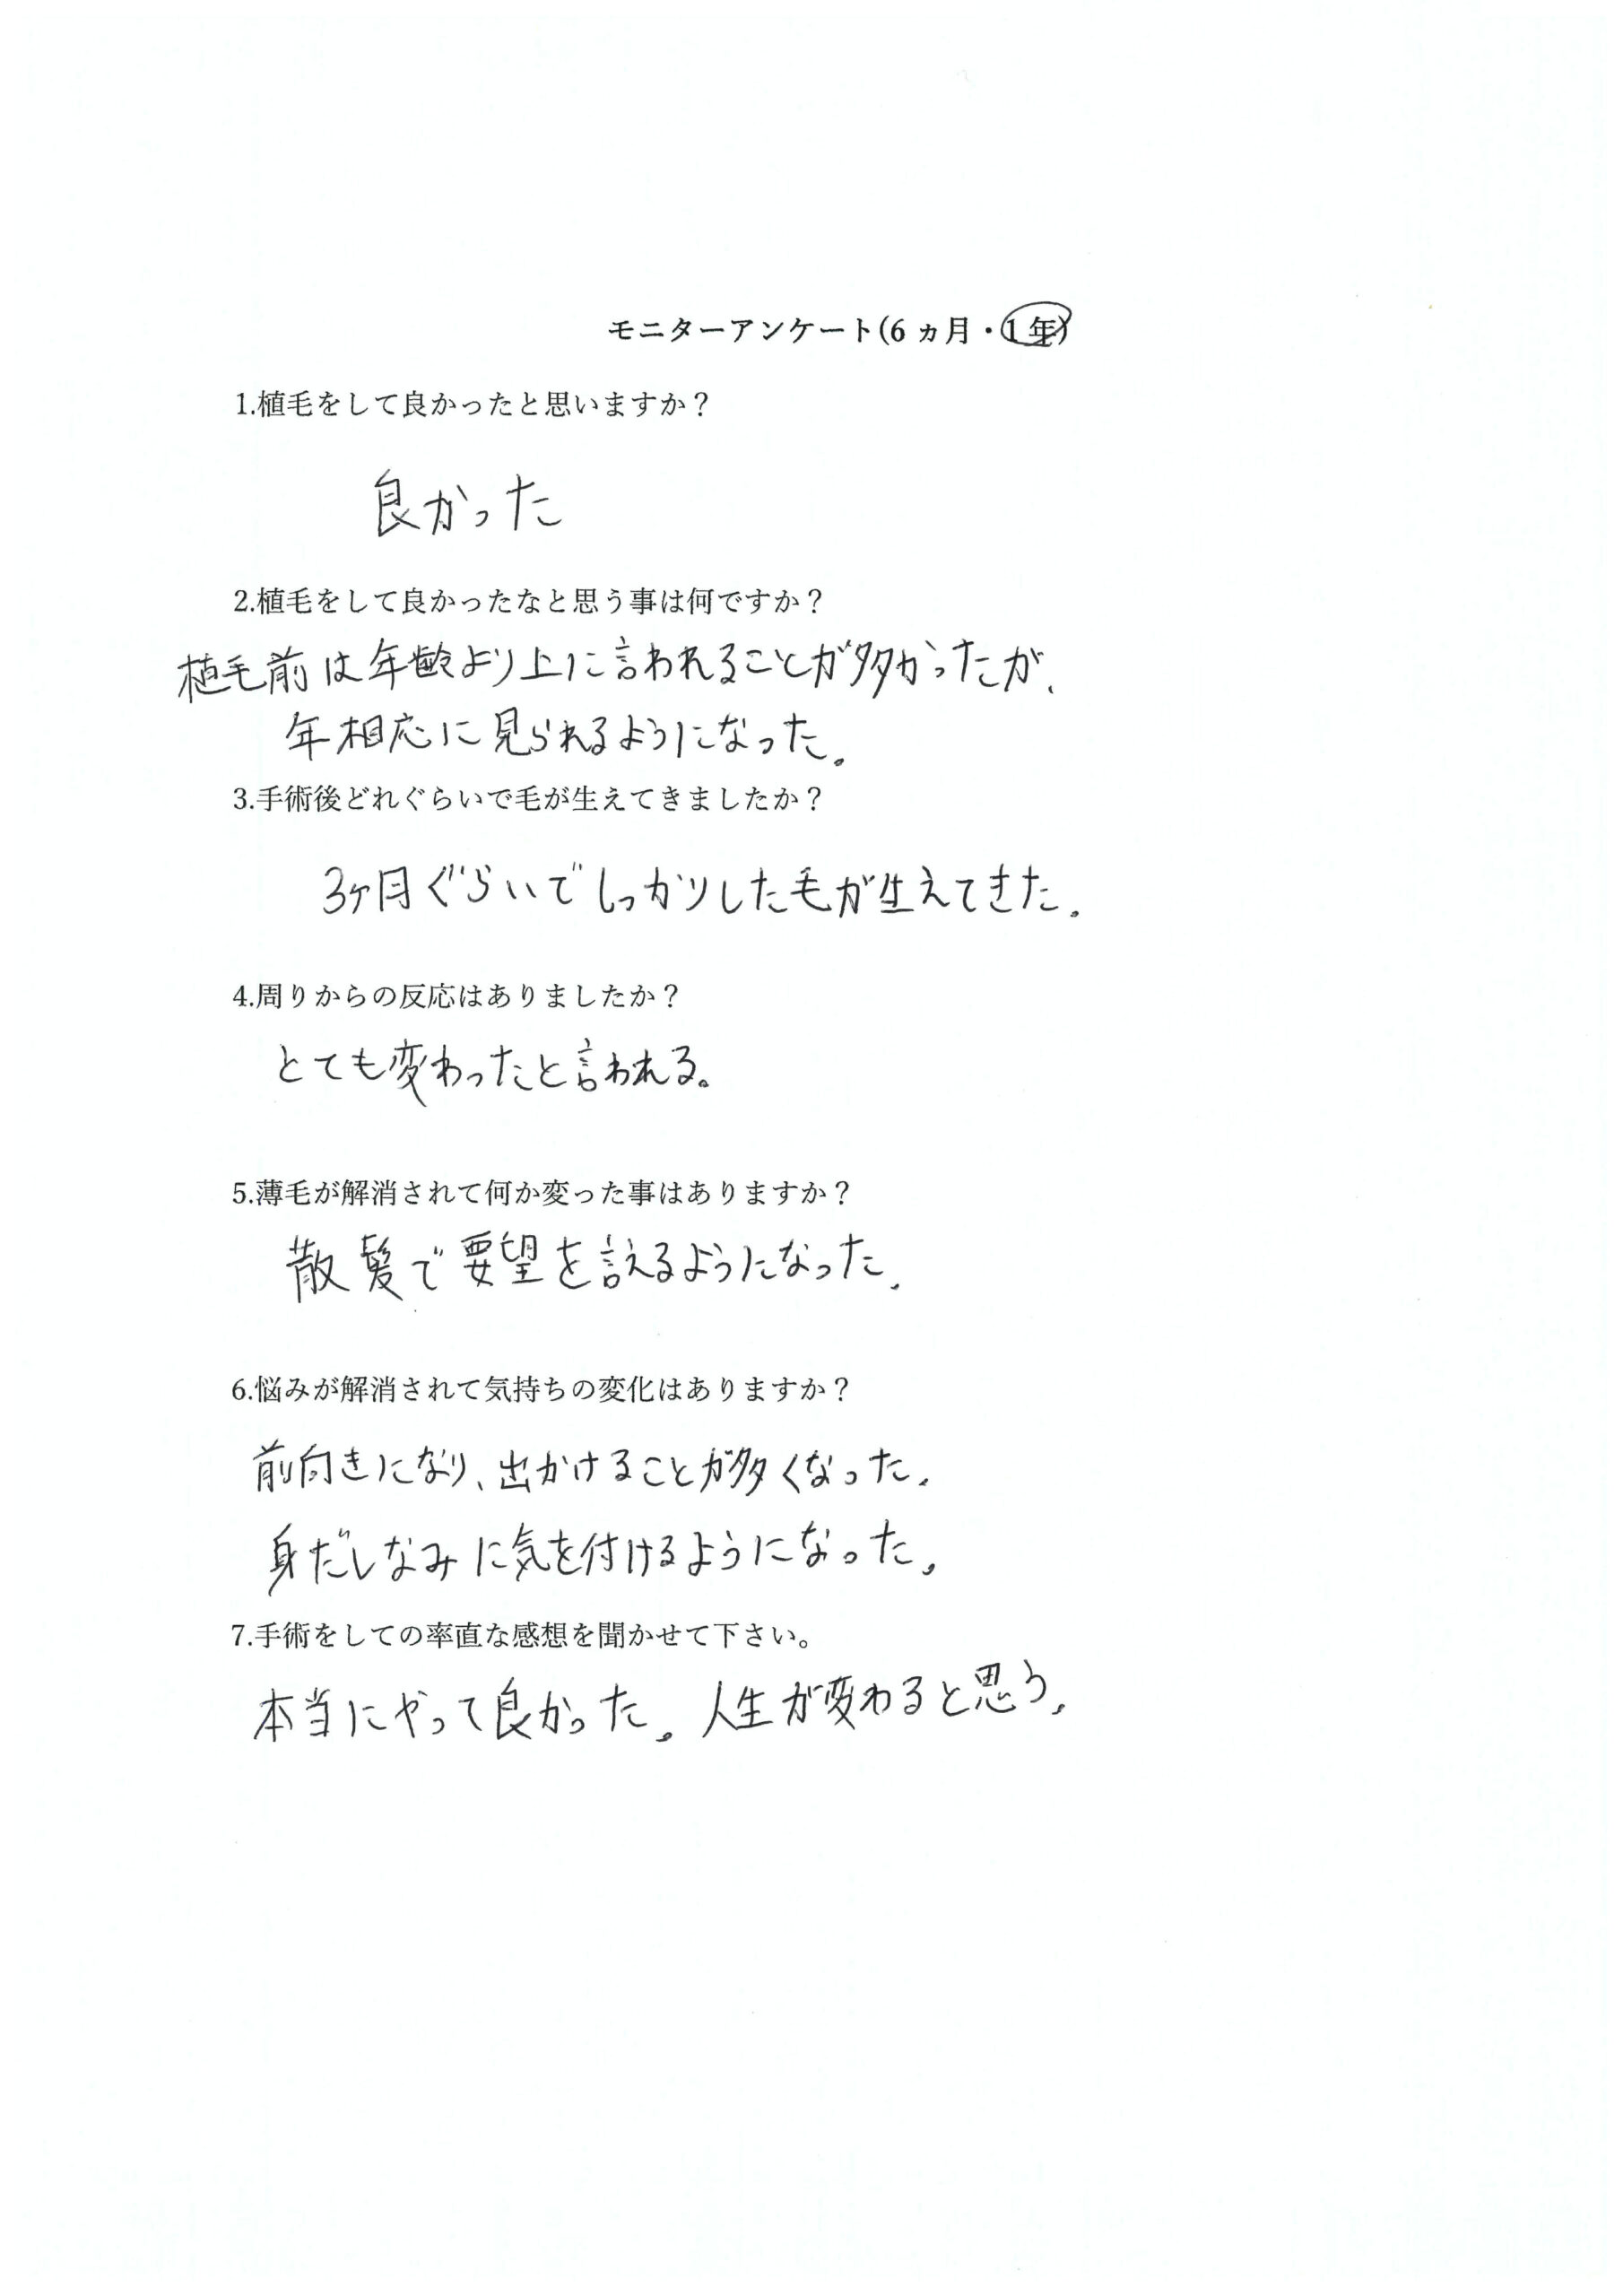 モニターアンケート(6 ヵ月・1 年)
1.植毛をして良かったと思いますか？
良かった
2.植毛をして良かったなと思う事は何ですか？
植毛前は年齢より上に言われることが多かったが、
年相応に見られるようになった。
3.手術後どれぐらいで毛が生えてきましたか？
3ヶ月ぐらいでしっかりした毛が生えてきた。
4.周りからの反応はありましたか？
とても変わったと言われる。
5.薄毛が解消されて何か変った事はありますか？
散髪で要望を言えるようになった。
6.悩みが解消されて気持ちの変化はありますか？
前向きになり、出かけることが多くなった。
身だしなみに気を付けるようになった。
7.手術をしての率直な感想を聞かせて下さい。
本当にやって良かった。人生が変わると思う。